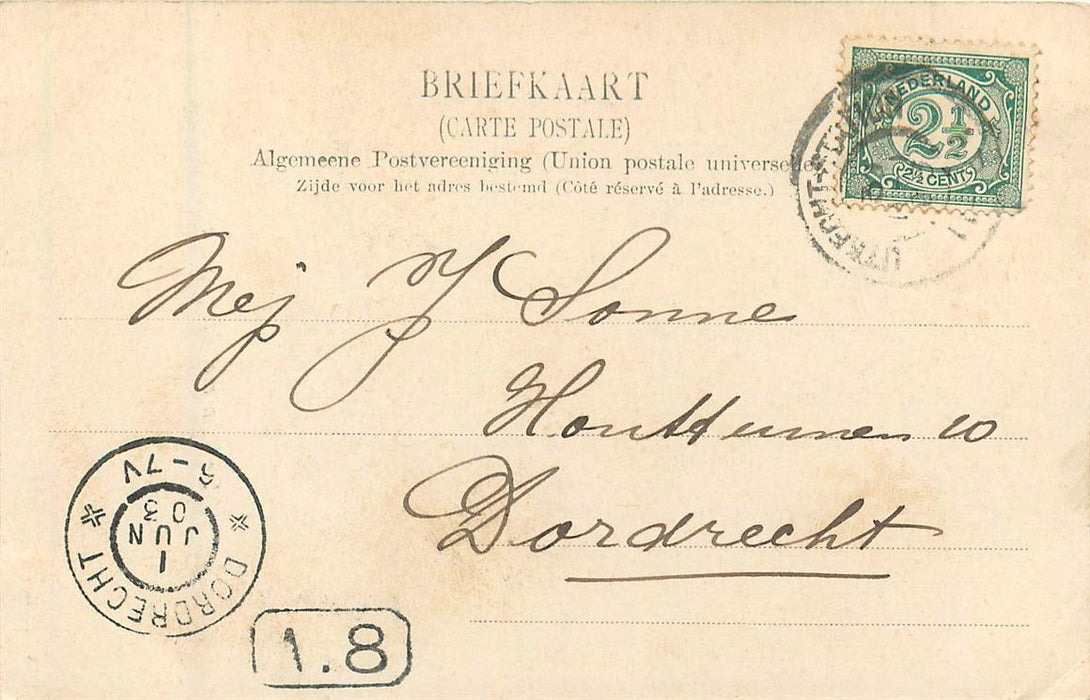 BRIEFKAART
(CARTE POSTALE)
Algemeene Postvereeniging (Union postale universelle)
Zijde voor het adres bestemd (Côté réservé à l'adresse.)
NEDERLAND
2½
2½ CENT
UTRECHT
Mej J Sonne
Houttuinen 10
Dordrecht
DORDRECHT
1
JUN
03
6-7V
1.8